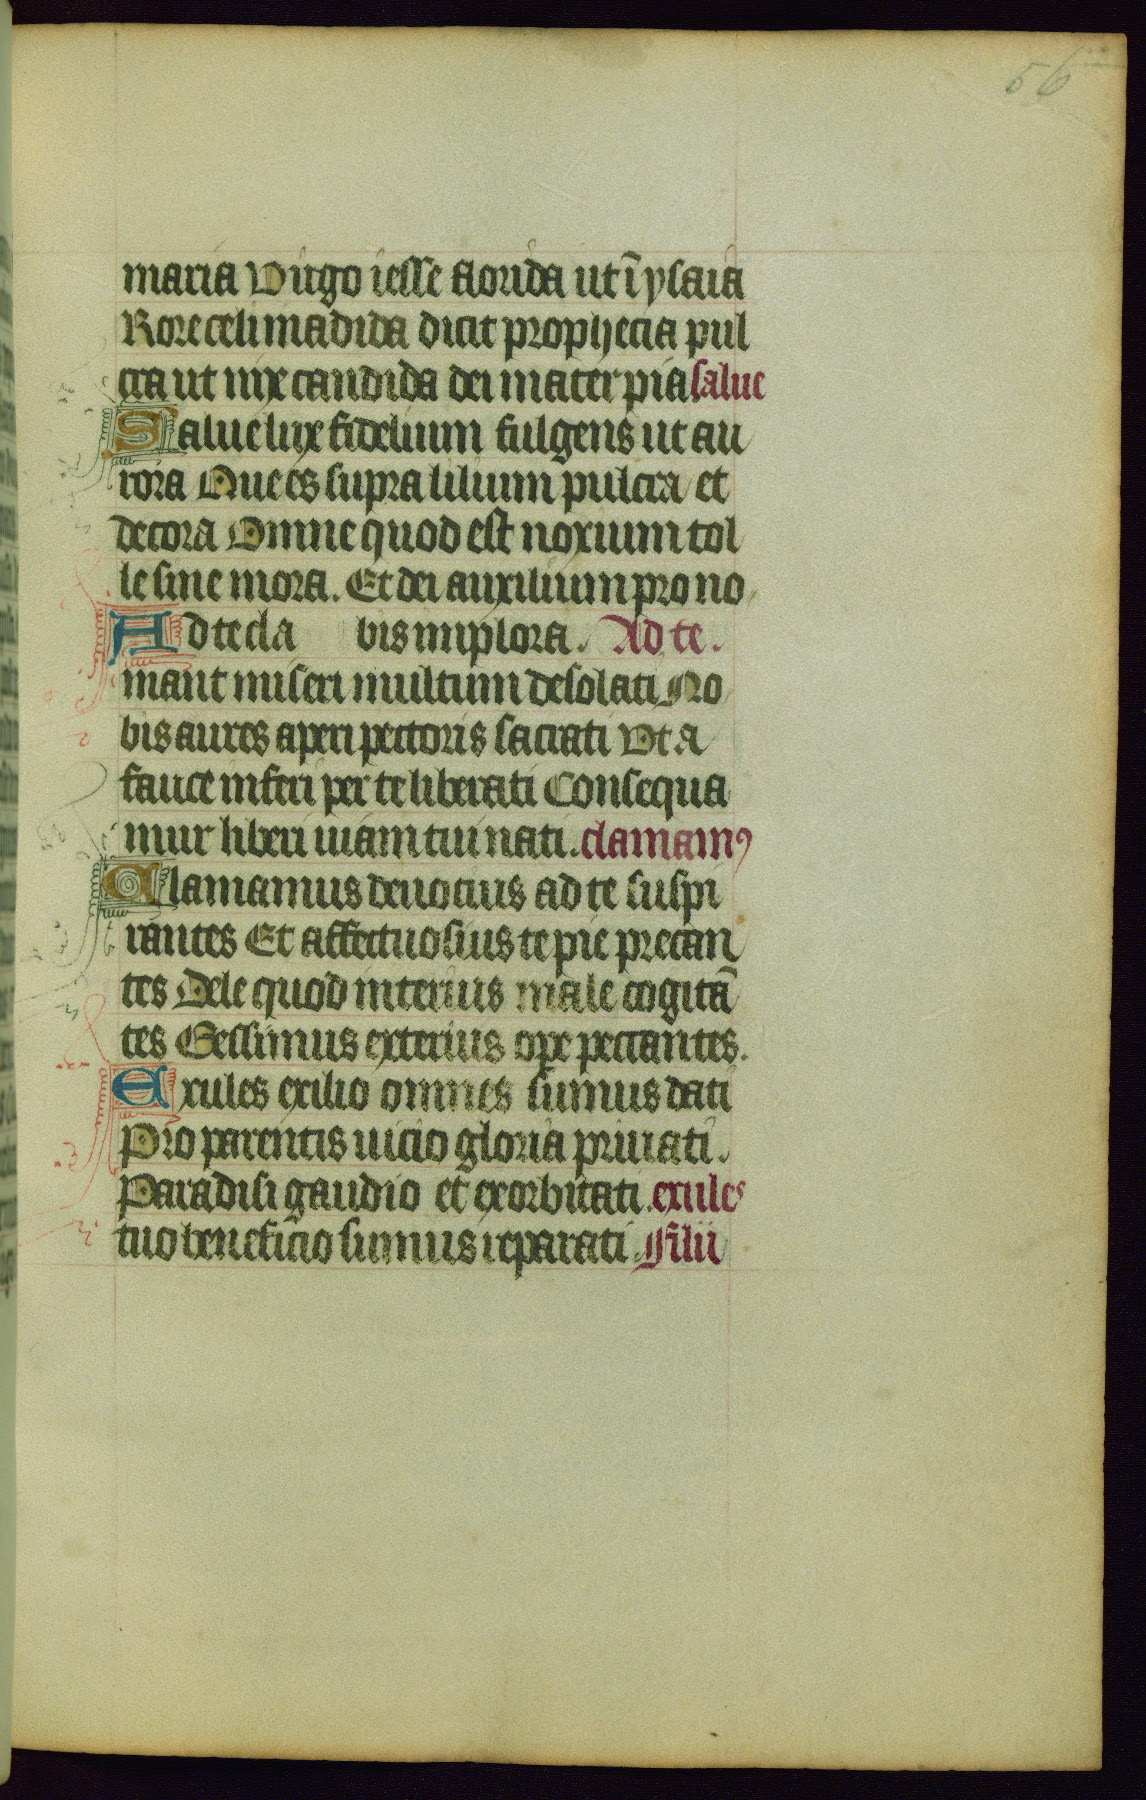 56
maria Virgo iesse florida ut ī ysaia
Rore celi madida dicit prophecia pul
cra ut nix candida dei mater pia salue
Salue lux fidelium fulgens ut au
rora Que es supra lilium pulcra et
decora Omne quod est noxium tol
le sine mora. Et dei auxilium pro no
Ad te cla bis implora. Ad te.
mant miseri multum desolati No
bis aures aperi pectoris sacrati Vt a
fauce inferi per te liberati Consequa
mur liberi uiam tui nati. clamamꝰ
Clamamus deuocius ad te suspi
rantes Et affectuosius te pie precan
tes Dele quod interius male cogitā
tes Gessimus exterius ope pectantes.
Exules exilio omnes sumus dati
Pro parentis uicio gloria priuati.
Paradisi gaudio et exorbitati. exules
tuo beneficio sumus reparati. Filii